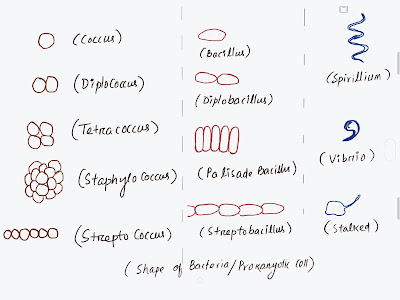 (Coccus)
(Diplococcus)
(Tetracoccus)
(Staphylo Coccus)
(Strepto Coccus)
(Bacillus)
(Diplobacillus)
(Palisade Bacillus)
(Streptobacillus)
(Spirillium)
(Vibrio)
(Stalked)
(Shape of Bacteria/Prokaryotic Cell)